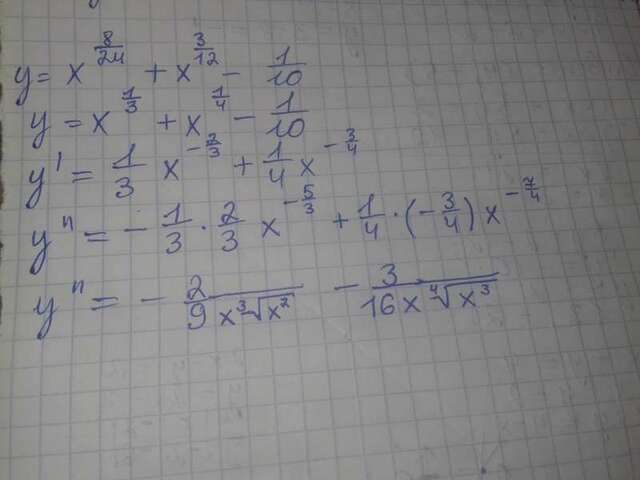 y = x^(8/24) + x^(3/12) - 1/10
y = x^(1/3) + x^(1/4) - 1/10
y' = 1/3 x^(-2/3) + 1/4 x^(-3/4)
y'' = - 1/3 · 2/3 x^(-5/3) + 1/4 · (-3/4) x^(-7/4)
y'' = - 2/(9x ∛(x²)) - 3/(16x ∜(x³))